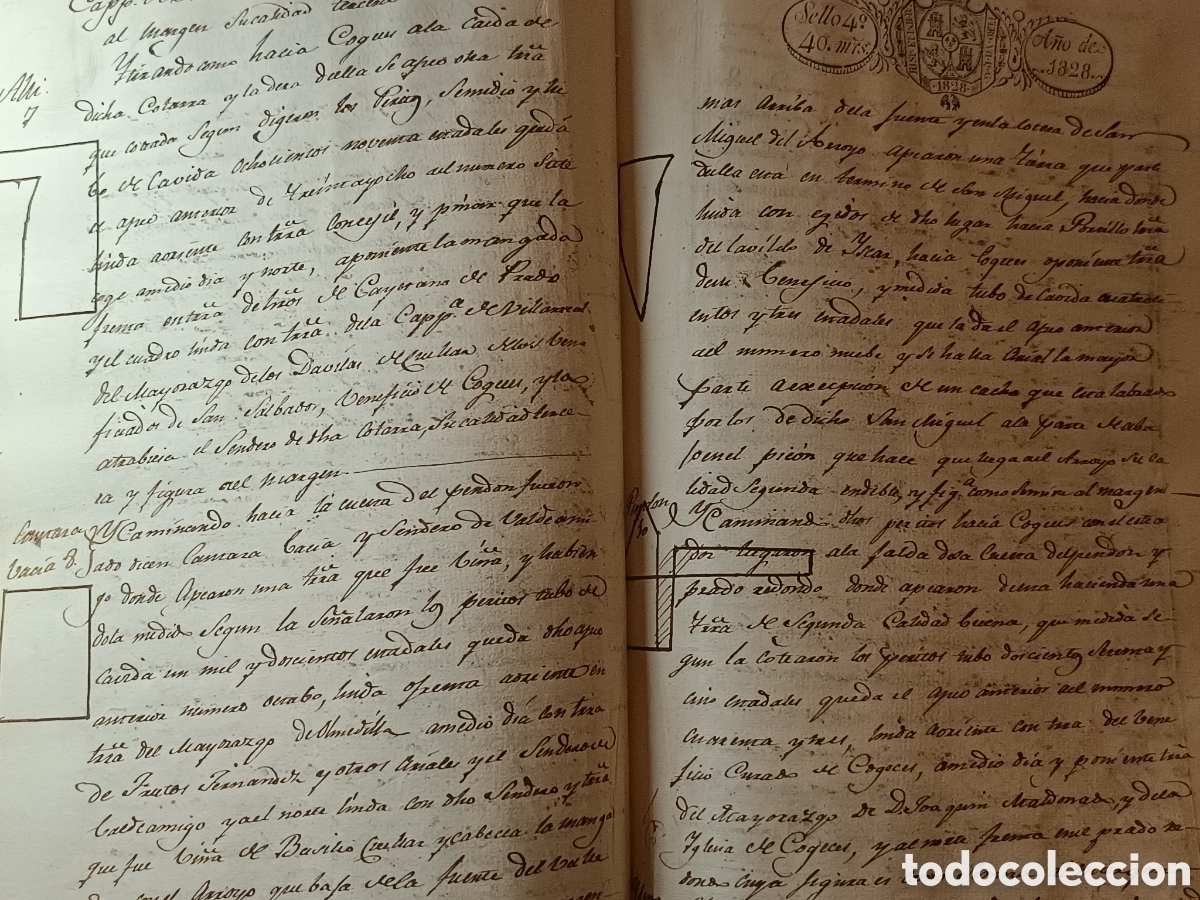 al margen su calidad tercera
Y tirando como hacia Coguces ala caida de
Albi.
7
dicha Cotarra y ladera della se apeo otra trrã
que cotada segun digeron los Peritos, Semidio y tu
bo de Cavida Ochocientos noventa estadales queda
el apeo anterior de treinta y ocho al numero siete
linda aoriente con trrã concegil, y pinar que la
coge amedio dia y norte, aponiente la mangada
frema en trrã de hrõs de Cayetano de Prado
y el cuadro linda con trrã de la Capp.ª de Villarreal
del Mayorazgo de los Davilas de Cuellar de los Bene
ficiados de San Salbador, beneficio de Cogeces, y la
atrabiesa el Sendero de dha Cotarra, su calidad terce-
ra y figura al margen
Cantara
bacia 8.
Y Caminando hacia la cuesta del pendon fueron
ado dicen Cantara bacia y Sendero de Valdecami-
go donde Apearon una trrã que fue Viñã, y habien
dola medido segun la Señalaron los peritos tubo de
cavida un mil y doscientos estadales queda dho apeo
anterior numero octabo, linda o frema aoriente en
trrã del Mayorazgo de Olmedilla amedio dia con trrã
de Frutos Fernandez y otros Ariales y el Sendero de
Valdecamigo y al norte linda con dho Sendero y trrã
que fue Viñã de Basilio Cuellar y cabecea la manga
en el Arroyo que baja de la fuente del Valle
Sello 4º
40. mrs.
1828
Año de
1828.
mas arriba dela fuente y enla loma de San
Miguel del Arroyo apearon una tierra que parte
della está en termino de San Miguel, hacia donde
linda con egidos de dho lugar hacia Portillo trrã
del Cavildo de Iscar, hacia Coguces o poniente trrã
deste beneficio, y medida tubo de cavida cuatroci-
entos y tres estadales que la da el apeo anterior
al numero nuebe y se halla herial la mayor
parte a excepcion de un cacho que esta labrado
por los de dicho San Miguel ala parte de aba
jo en el picón que hace que llega al Arroyo su ca
lidad Segunda endible, y fig.ª como se mira al margen
Y Caminando dhos peritos hacia Coguces con el esta
dor llegaron ala falda dela Cuesta del pendon y
prado redondo donde apearon desta hacienda una
trrã de Segunda Calidad buena, que medida se-
gun la cotearon los peritos tubo doscientos setenta y
cinco estadales queda el apeo anterior al numero
cuarenta y tres, linda aoriente con trrã del bene
ficio Curado de Cogeces, amedio dia y poniente trrã
del Mayorazgo de D. Joaquin Maldonado, y dela
Iglesia de Cogeces, y al norte frema en el prado re
dondo cuya figura es
todocoleccion